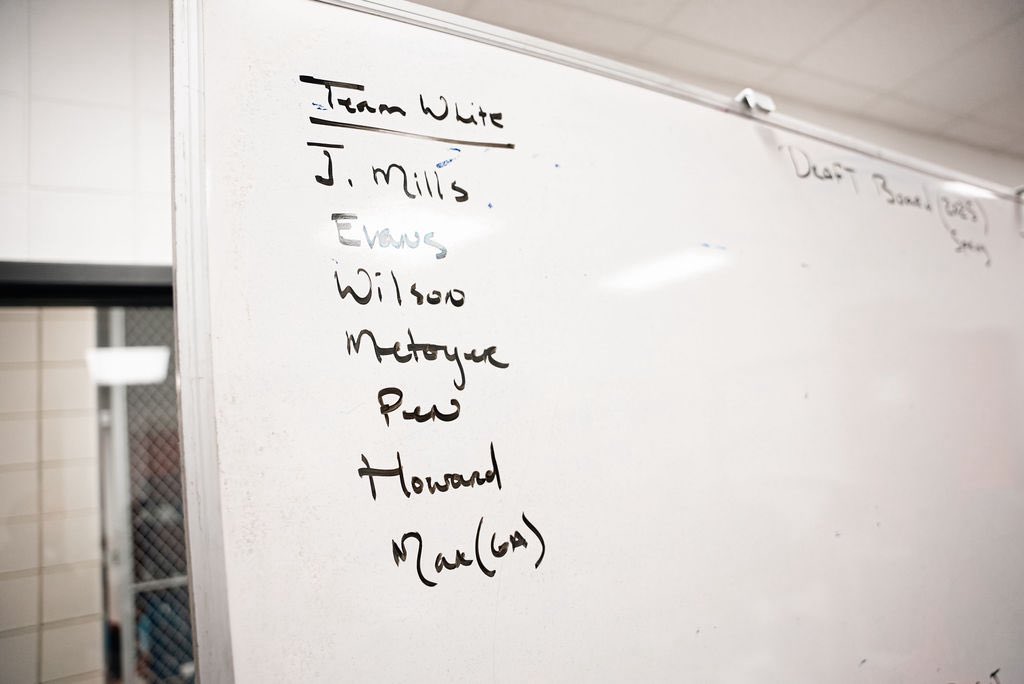 Team White
J. Mills
Evans
Wilson
Metoyer
Pen
Howard
Max (GA)
Draft Board (2025)
Spring